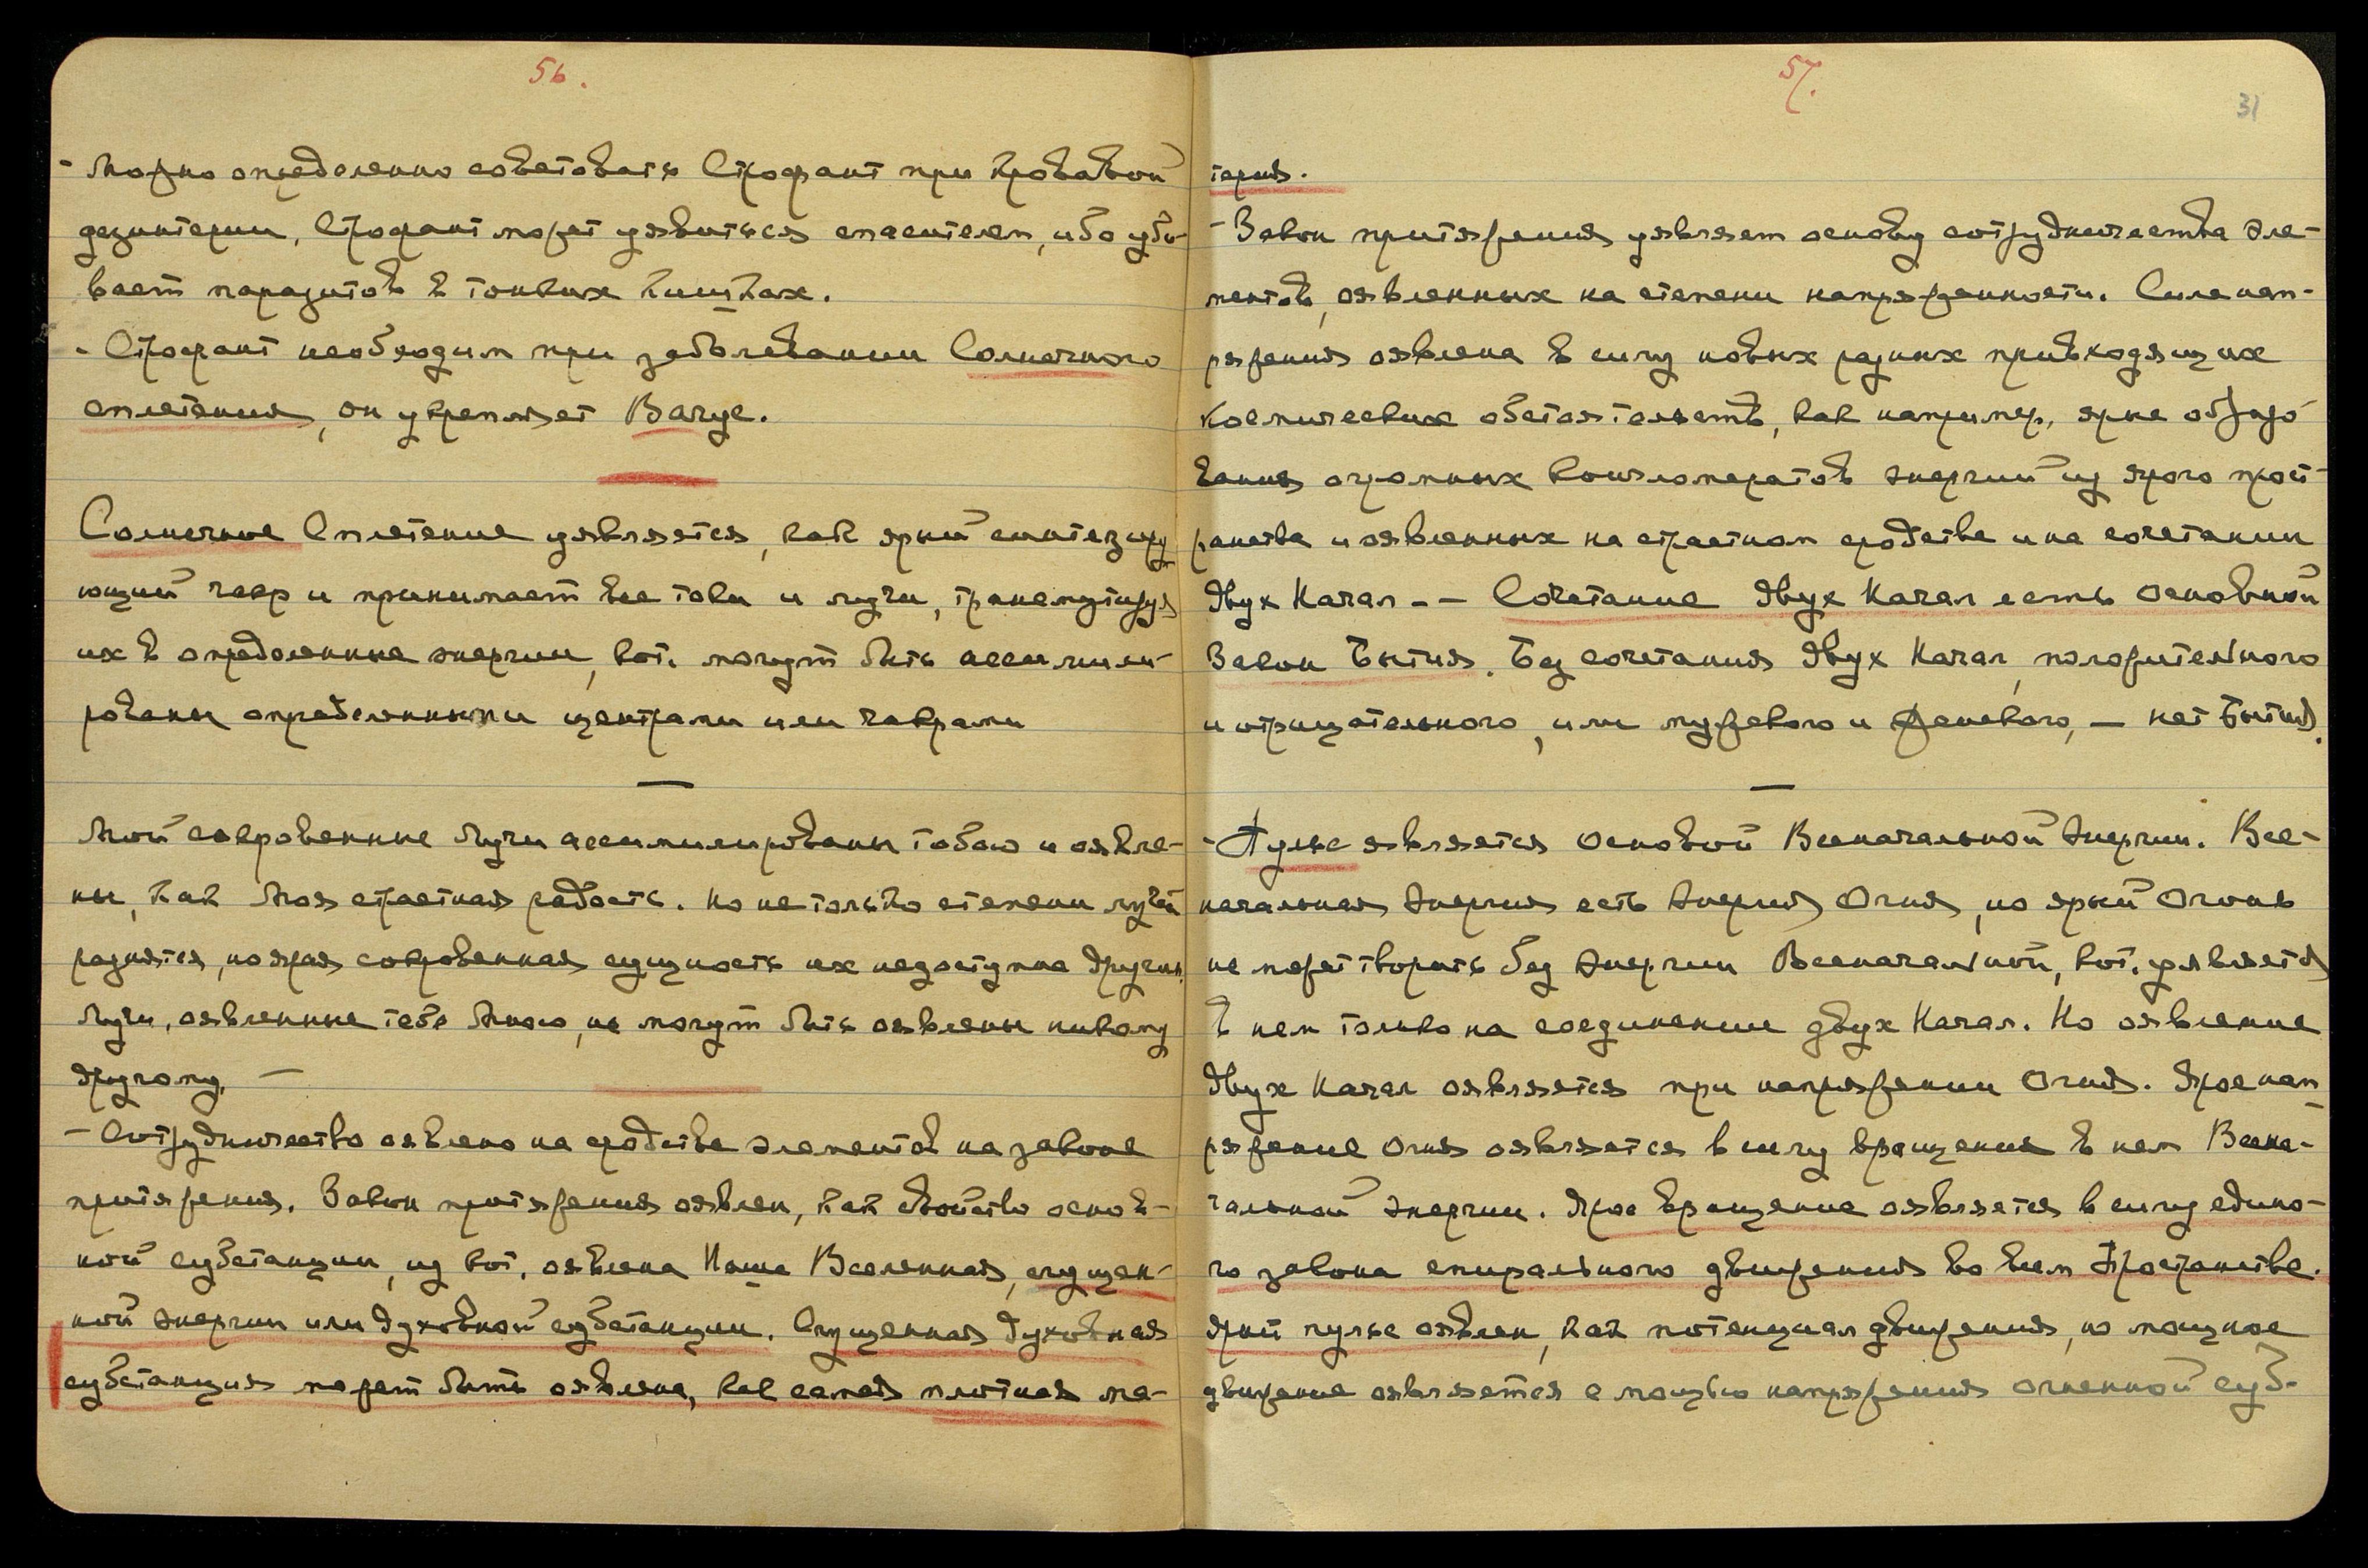 56.
- Можно определенно советовать Строфант при кровавой
дезинтерии, Строфант может уявиться спасителем, ибо уби-
вает паразитов в тонких кишках.
- Строфант необходим при заболевании Солнечного
сплетения, он укрепляет Вагус.
Солнечное Сплетение уявляется, как ярый синтезиру-
ющий чакр и принимает все токи и лучи, трансмутируя
их в определенные энергии, кот. могут быть ассимили-
рованы определенными центрами или чакрами
—
Мои сокровенные Лучи ассимилированы тобою и оявле-
ны, как Моя страстная радость. Но не только степени лучей
разнятся, но ярая сокровенная сущность их недоступна другим.
Лучи, оявленные тебе Мною, не могут быть оявлены никому
другому. —
- Сотрудничество оявлено на сродстве элементов на законе
притяжения. Закон притяжения оявлен, как свойство основ-
ной субстанции, из кот. оявлена Наша Вселенная, сгущен-
ной энергии или духовной субстанции. Сгущенная духовная
субстанция может быть оявлена, как самая плотная ма-
57.
31
терия.
- Закон притяжения уявляет основу сотрудничества эле-
ментов, оявленных на степени напряженности. Сила нап-
ряжения оявлена в силу новых разных привходящих
Космических обстоятельств, как например, ярые образо-
вания огромных конгломератов энергий из ярого прост-
ранства и оявленных на страстном сродстве и на сочетании
двух Начал -- Сочетание двух Начал есть Основной
Закон Бытия. Без сочетания двух Начал, положительного
и отрицательного, или мужского и женского, — нет Бытия.
—
- Пульс является Основой Всеначальной Энергии. Все-
начальная Энергия есть Энергия Огня, но ярый Огонь
не может творить без Энергии Всеначальной, кот. уявляется
в нем только на соединении двух Начал. Но оявление
двух Начал оявляется при напряжении Огня. Ярое нап-
ряжение Огня оявляется в силу вращения в нем Всена-
чальной Энергии. Ярое вращение оявляется в силу едино-
го закона спирального движения во всем Пространстве.
Ярый пульс оявлен, как потенциал движения, но мощное
движение оявляется с мощью напряжения огненной суб-